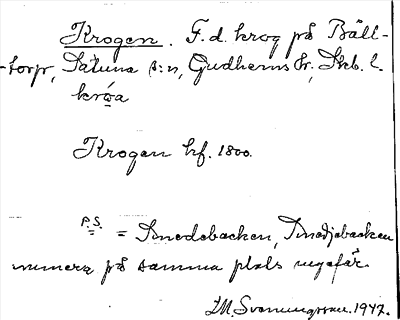 Krogen. F.d. krog på Bäll-
-torp, Sätuna s:n, Gudhems hr, Skb. l.
kròa
Krogen hf. 1800.
P.S. = Smedebacken, Smedjebacken
numera på samma plats ungefär.
I.M. Svenungsson. 1947.